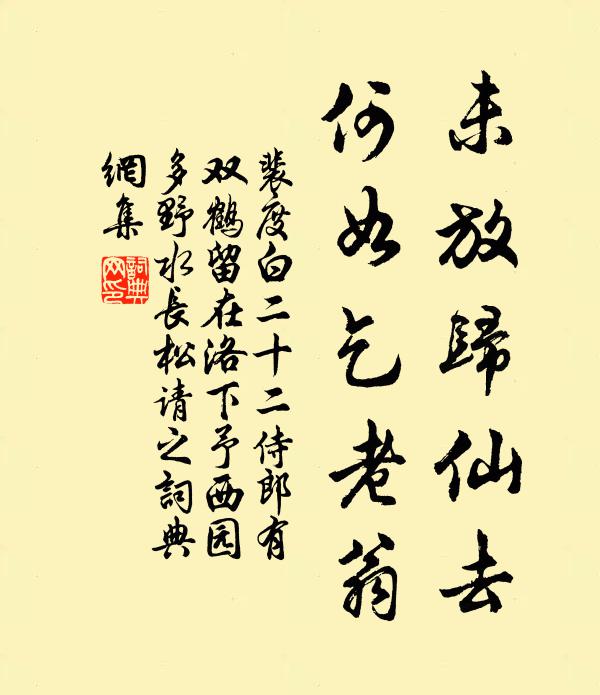 未放歸仙去
何如乞老翁
裴度白二十二侍郎有
双鶴留在洛下予西园
多野水長松请之詞典
網集
詞典
网印